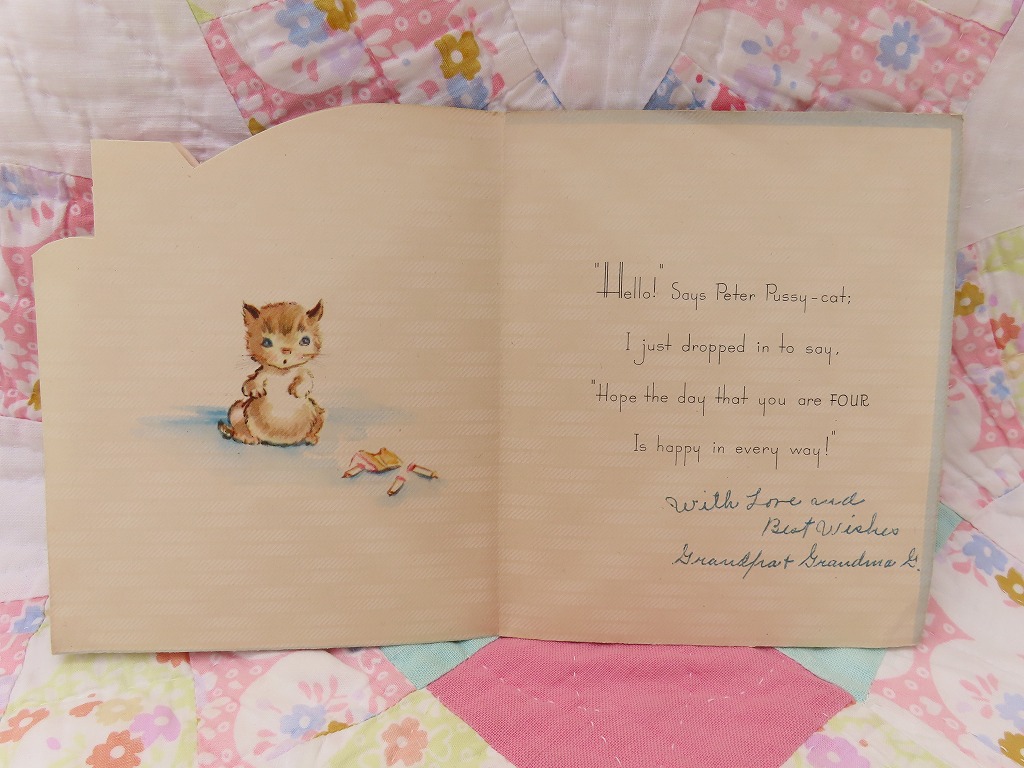 "Hello!" Says Peter Pussy-cat;
I just dropped in to say,
"Hope the day that you are FOUR
Is happy in every way!"
With Love and
Best Wishes
Grandpa + Grandma G.